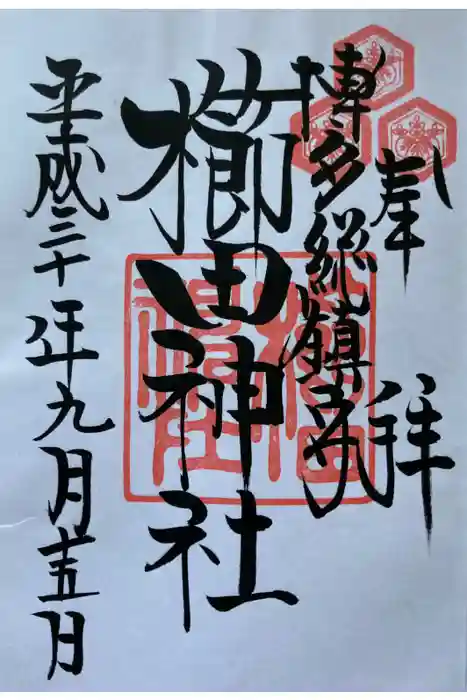 奉拝
博多総鎮守
櫛田神社
平成三十年九月十五日